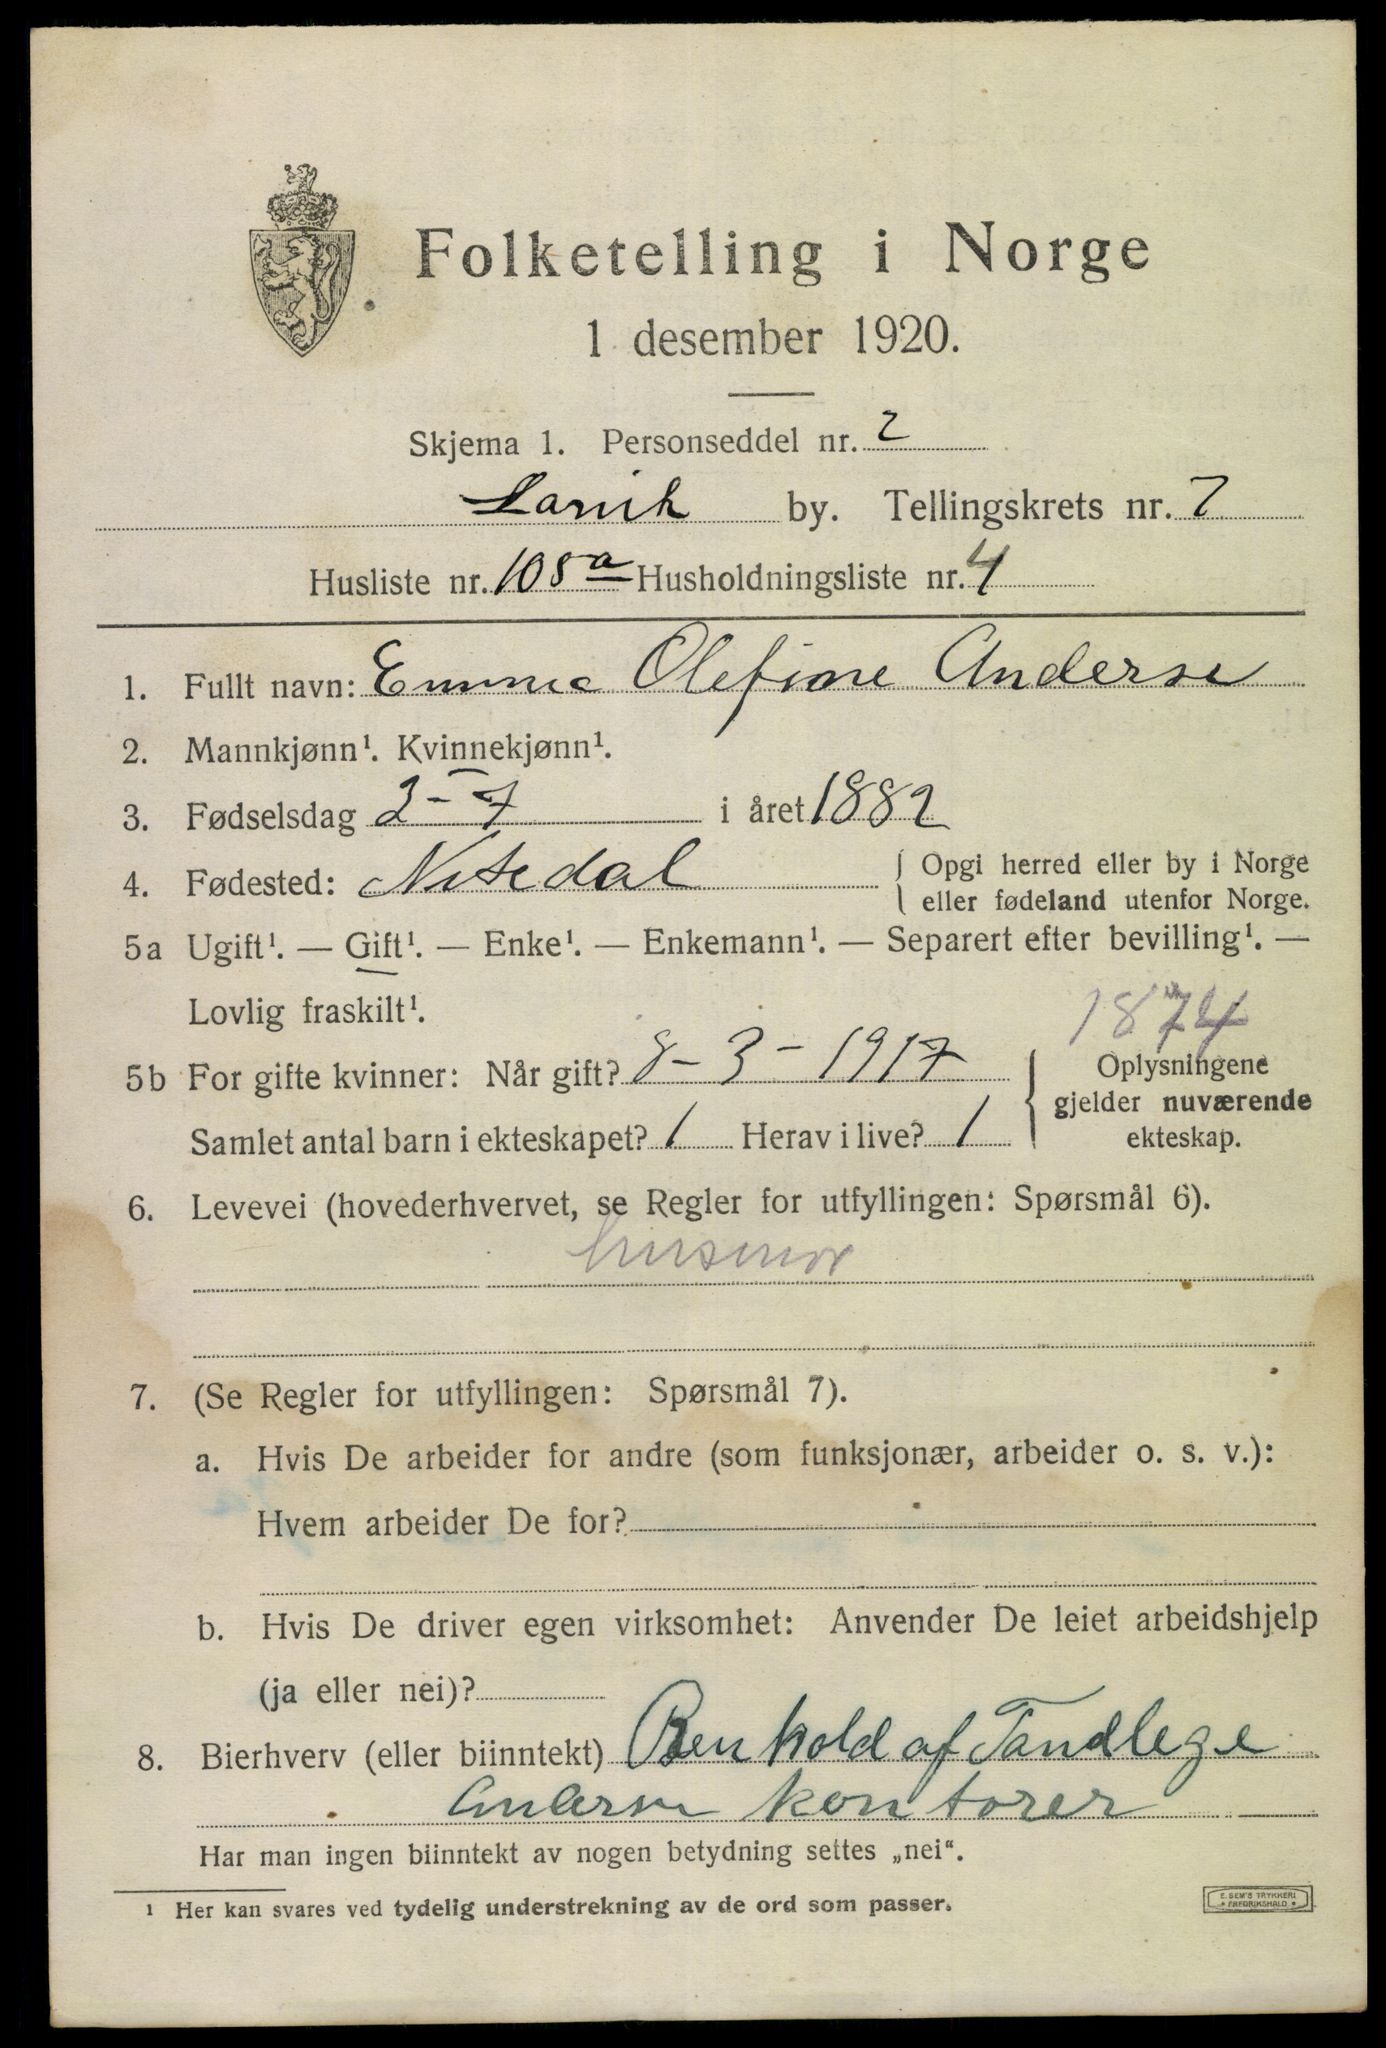 Folketelling i Norge
1 desember 1920.
Skjema 1. Personseddel nr. 2
Larvik by. Tellingskrets nr. 7
Husliste nr. 105a Husholdningsliste nr. 4
1. Fullt navn: Emma Olefine Anderse
2. Mannkjønn¹. Kvinnekjønn¹.
3. Fødselsdag 2-7 i året 1882
4. Fødested: Nitedal { Opgi herred eller by i Norge
eller fødeland utenfor Norge.
5a Ugift¹. — Gift¹. — Enke¹. — Enkemann¹. — Separert efter bevilling¹. —
Lovlig fraskilt¹.
1874
5b For gifte kvinner: Når gift? 8-3-1917
Samlet antal barn i ekteskapet? 1 Herav i live? 1
{ Oplysningene
gjelder nuværende
ekteskap.
6. Levevei (hovederhvervet, se Regler for utfyllingen: Spørsmål 6).
husmor
7. (Se Regler for utfyllingen: Spørsmål 7).
a. Hvis De arbeider for andre (som funksjonær, arbeider o. s. v.):
Hvem arbeider De for?
b. Hvis De driver egen virksomhet: Anvender De leiet arbeidshjelp
(ja eller nei)?
8. Bierhverv (eller biinntekt) Renhold af Tandlege
Andersen kontorer
Har man ingen biinntekt av nogen betydning settes „nei“.
1 Her kan svares ved tydelig understrekning av de ord som passer.
E. SEM'S TRYKKERI
FREDRIKSHALD